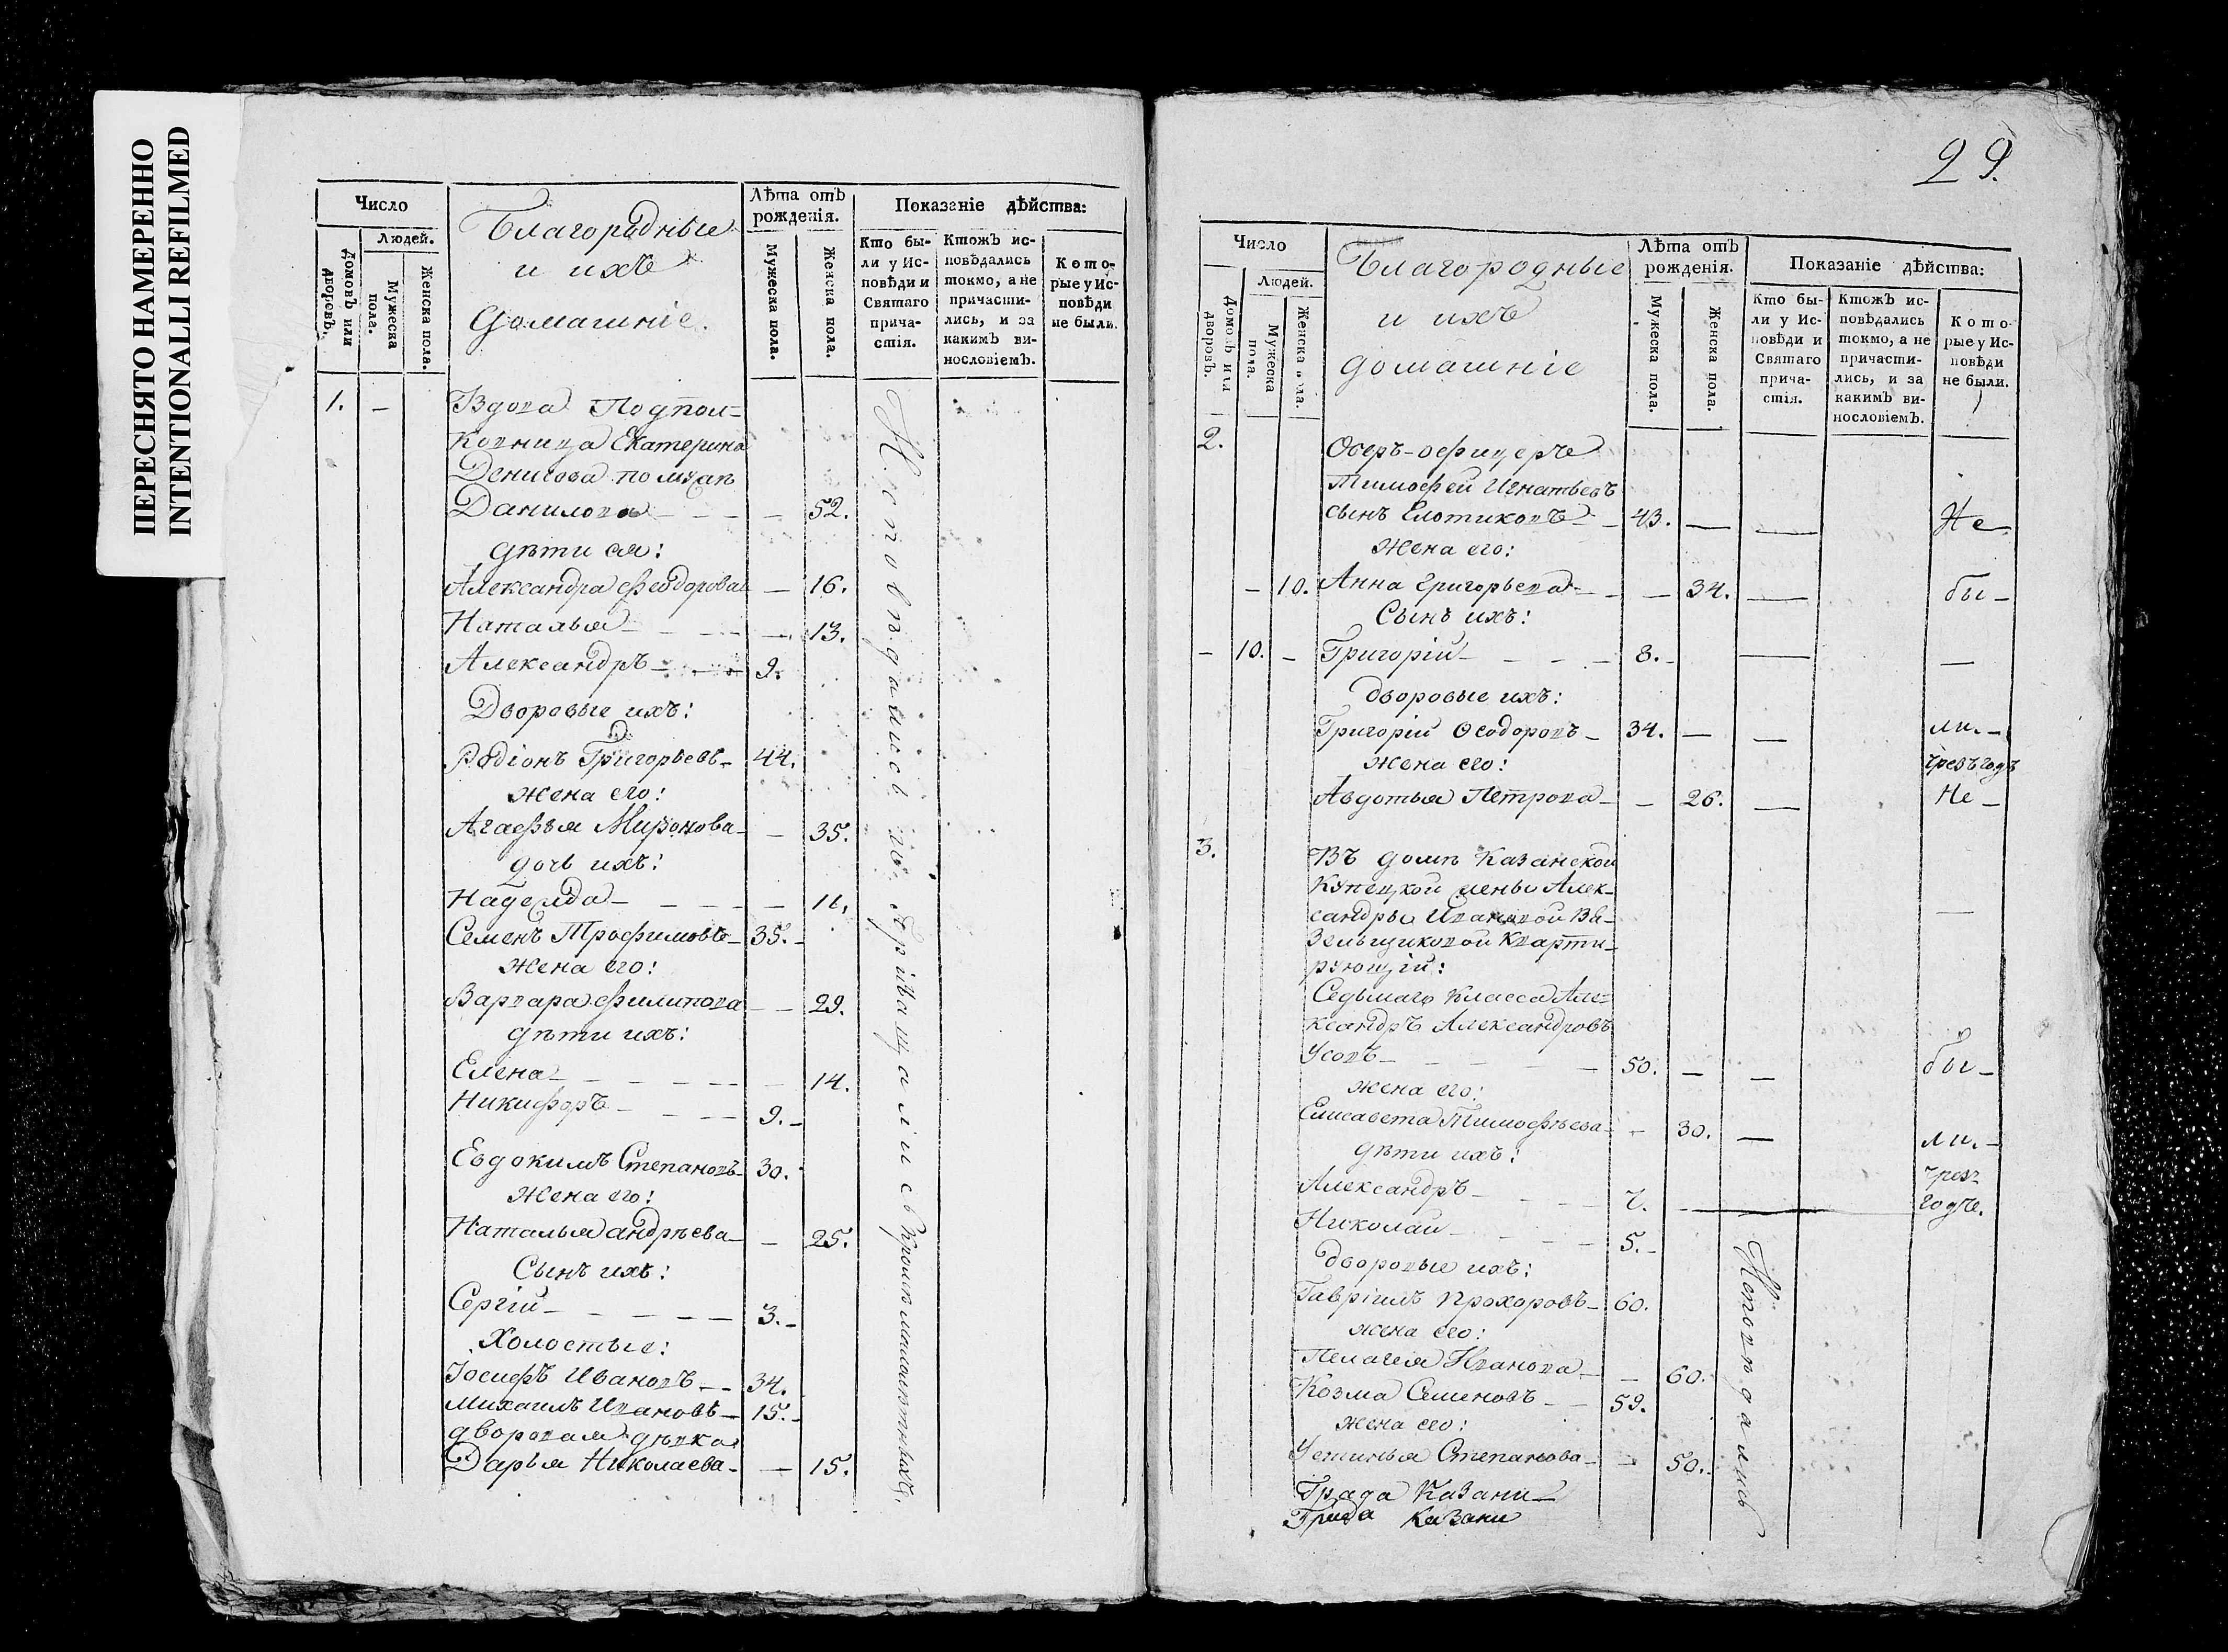 ПЕРЕСНЯТО НАМЕРЕННО
INTENTIONALLI REFILMED
Число
Людей.
Домовъ или дворовъ.
Мужеска пола.
Женска пола.
Благородные
и ихъ
домашніе.
Лѣта отъ рожденія.
Мужеска пола.
Женска пола.
Показаніе дѣйства:
Кто бы-
ли у Ис-
повѣди и
Святаго
прича-
стія.
Ктожъ ис-
повѣдались
токмо, а не
причасти-
лись, и за
какимъ ви-
нословіемъ.
Кото-
рые у Ис-
повѣди
не были.
1. - Вдова Подпол-
ковница Екатерина
Денисова по мужѣ
Данилова - - - 52.
дѣти ея:
Александра Феодорова - 16.
Наталья - - - 13.
Александръ - - - 9.
Дворовые ихъ:
Родіонъ Григорьевъ - 44.
жена его:
Агафья Миронова - - 35.
дочь ихъ:
Надежда - - - - 11.
Семенъ Трофимовъ - 35. -
Жена его:
Варвара Филипова - - 29.
дѣти ихъ:
Елена - - - - - 14.
Никифоръ - - - - 9. -
Евдокимъ Степановъ - 30.
Жена его:
Наталья Андрѣева - - 25.
Сынъ ихъ:
Сергій - - - - - 3. -
Холостые:
Іосифъ Ивановъ - - 34.
Михаилъ Ивановъ - 15. -
дворовая дѣвка
Дарья Николаева - - 15.
Исповѣдались и пріобщались кромѣ малолѣтныхъ.
29.
Число
Людей.
Домовъ или дворовъ.
Мужеска пола.
Женска пола.
Благородные
и ихъ
домашніе
Лѣта отъ рожденія.
Мужеска пола.
Женска пола.
Показаніе дѣйства:
Кто бы-
ли у Ис-
повѣди и
Святаго
прича-
стія.
Ктожъ ис-
повѣдались
токмо, а не
причасти-
лись, и за
какимъ ви-
нословіемъ.
Кото-
рые у Ис-
повѣди
не были.
2. Оберъ-офицеръ
Тимофей Игнатьевъ
сынъ - 43. - - Не
Жена его:
- 10. Анна Григорьева - - - 34. - бы -
Сынъ ихъ:
- 10. - Григорій - - - - 8. - - -
дворовые ихъ:
Григорій Феодоровъ - 34. - - ли. -
жена его: чрезъ годъ
Авдотья Петрова - - 26. - Не -
3. Въ домѣ Казанской
Купецкой жены Алек-
сандры Ивановой Вя-
зельщиковой кварти-
рующій:
Седьмаго класса Але-
ксандръ Александровъ
Усовъ - - - - - 50. - - бы -
жена его:
Елисавета Тимофѣева - - 30. - ли. -
дѣти ихъ: чрезъ
Александръ - - - 7. - годъ.
Николай - - - - 5. -
дворовые ихъ:
Гавріилъ Прохоровъ - 60.
жена его:
Пелагея Иванова - - 60.
Козма Семеновъ - - 59.
жена его:
Устинья Степанова - - 50. -
Исповѣдались
Града Казани -
Града Казани